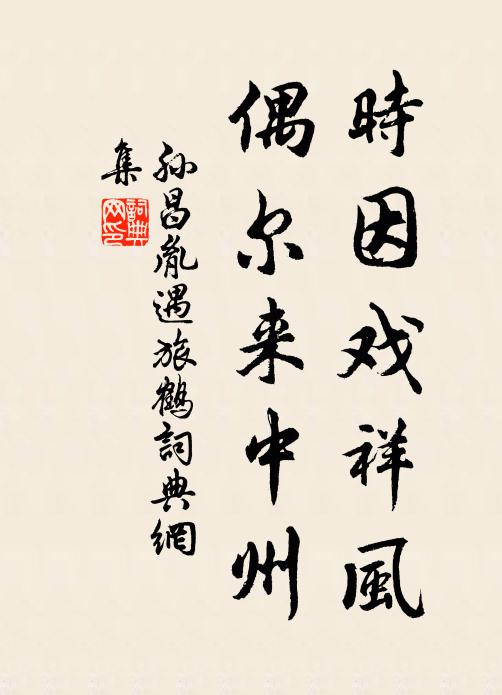 時因戏祥風
偶尔来中州
孙昌胤遇旅鶴詞典網
集
詞典
网印